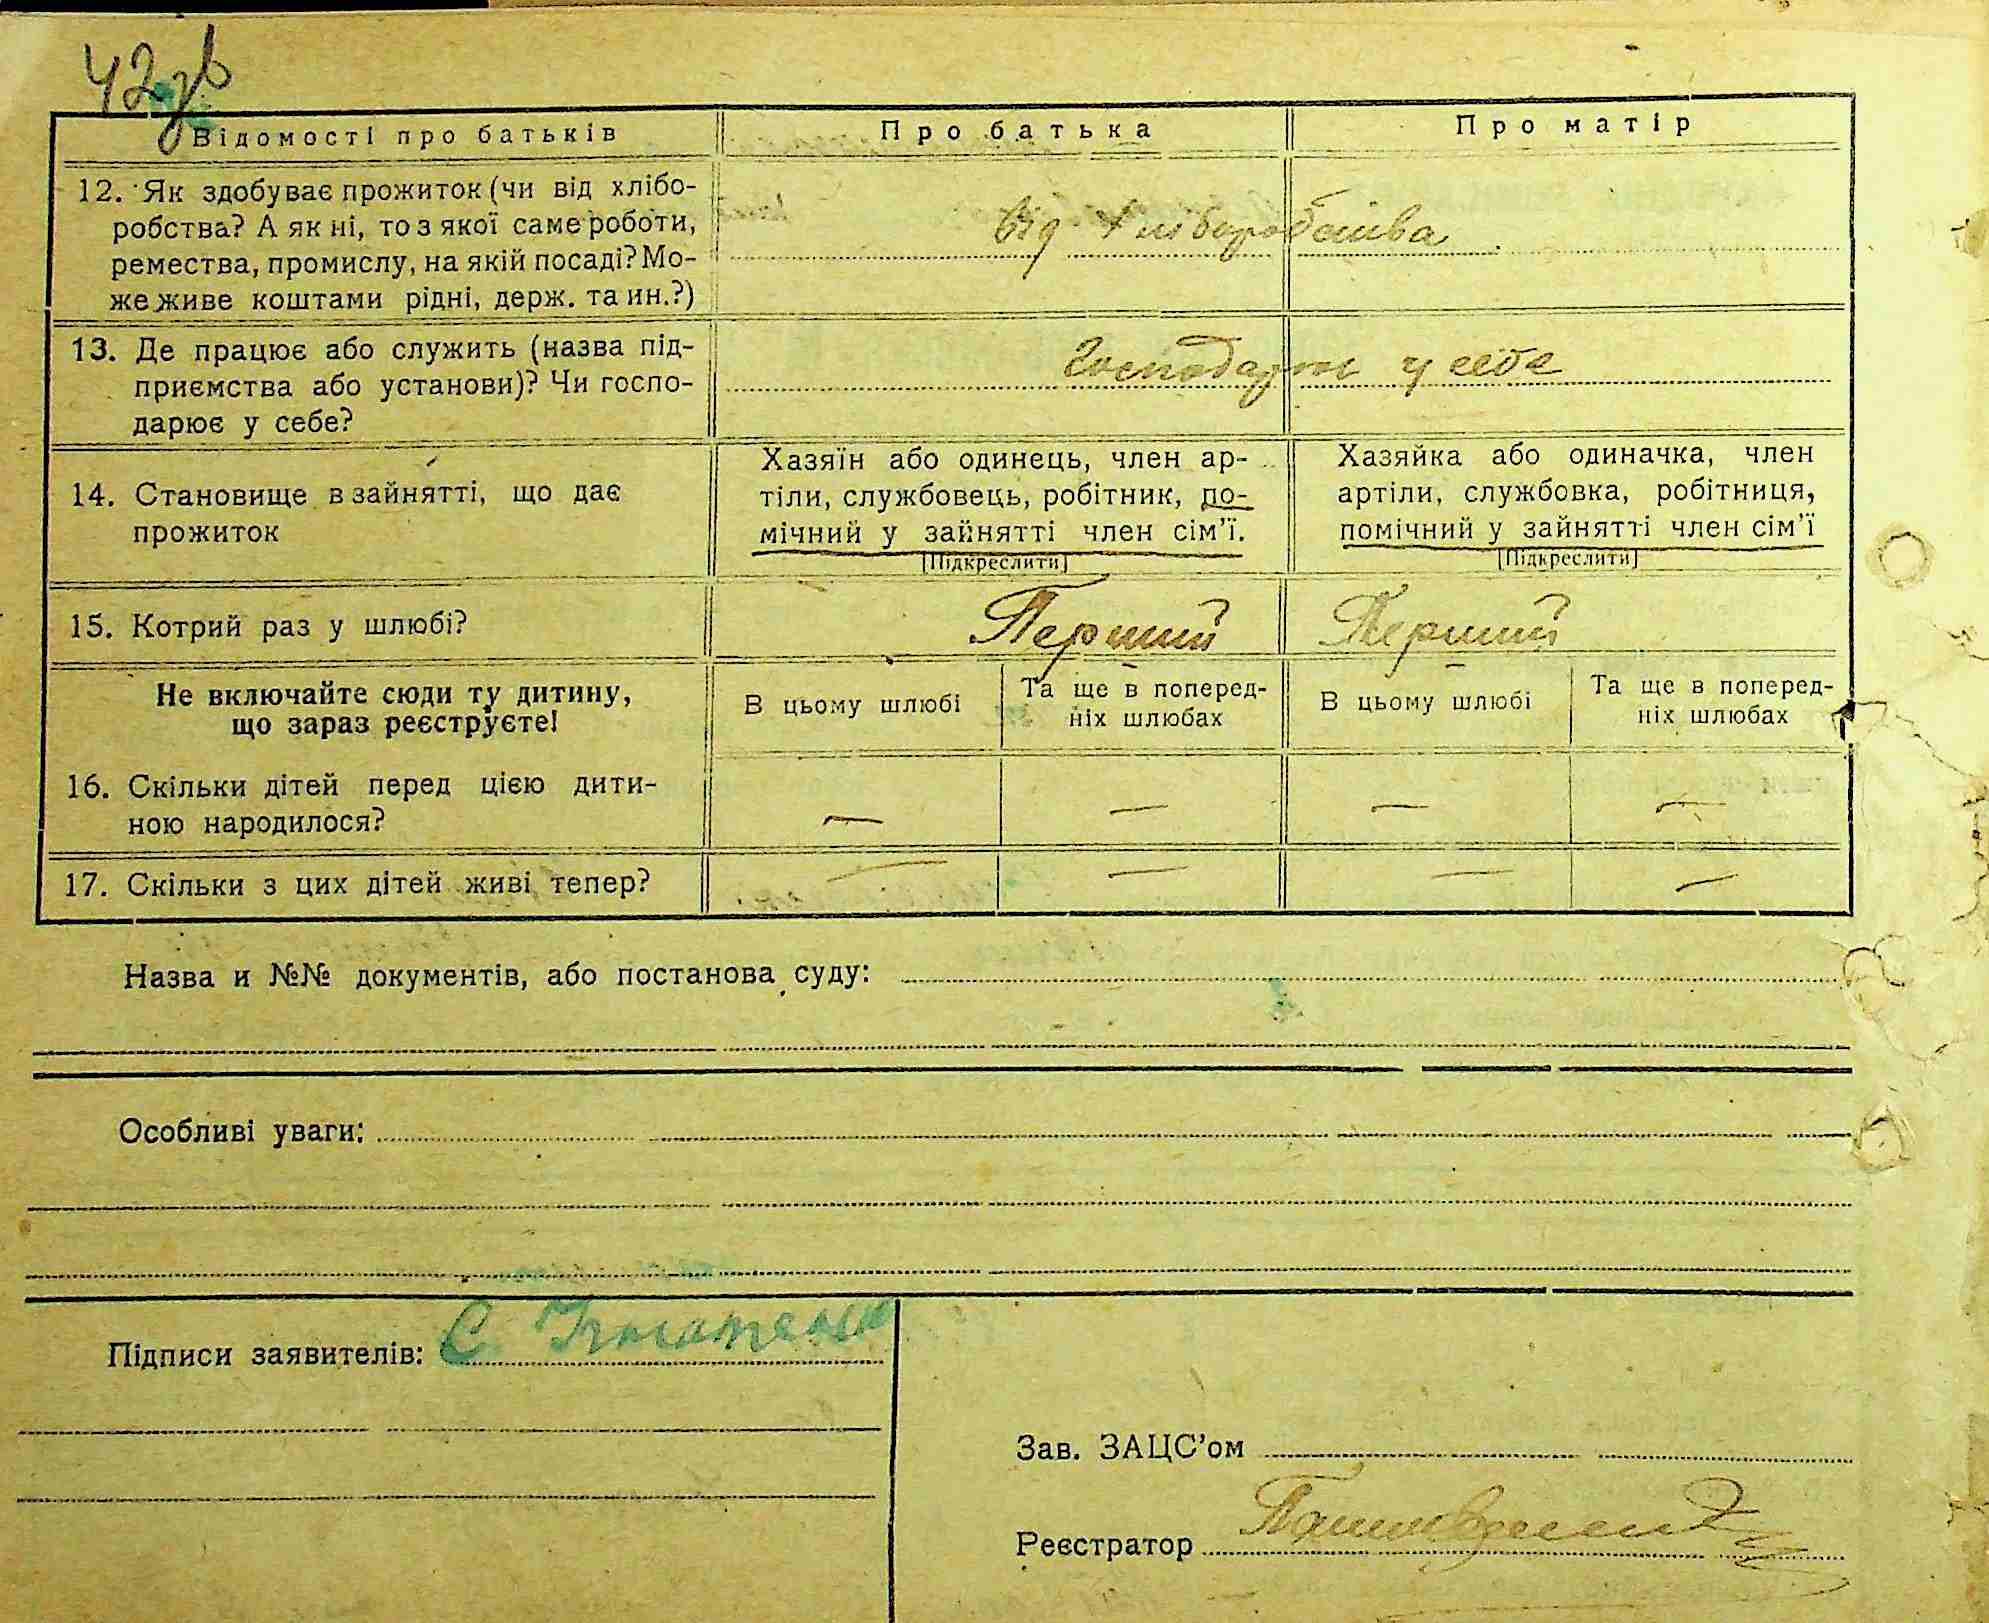 42зв
Відомості про батьків
Про батька
Про матір
12. Як здобуває прожиток (чи від хлібо-
робства? А як ні, то з якої саме роботи,
ремества, промислу, на якій посаді? Мо-
же живе коштами рідні, держ. та ин.?)
від хліборобства
13. Де працює або служить (назва під-
приємства або установи)? Чи госпо-
дарює у себе?
Господарює у себе
14. Становище в зайнятті, що дає
прожиток
Хазяїн або одинець, член ар-
тіли, службовець, робітник, по-
мічний у зайнятті член сім’ї.
[Підкреслити]
Хазяйка або одиначка, член
артіли, службовка, робітниця,
помічний у зайнятті член сім’ї
[Підкреслити]
15. Котрий раз у шлюбі?
Перший
Перший
Не включайте сюди ту дитину,
що зараз реєструєте!
В цьому шлюбі
Та ще в поперед-
ніх шлюбах
В цьому шлюбі
Та ще в поперед-
ніх шлюбах
16. Скільки дітей перед цією дити-
ною народилося?
— — — —
17. Скільки з цих дітей живі тепер?
— — — —
Назва и №№ документів, або постанова суду:
Особливі уваги:
Підписи заявителів: С.
Зав. ЗАЦС’ом
Реєстратор